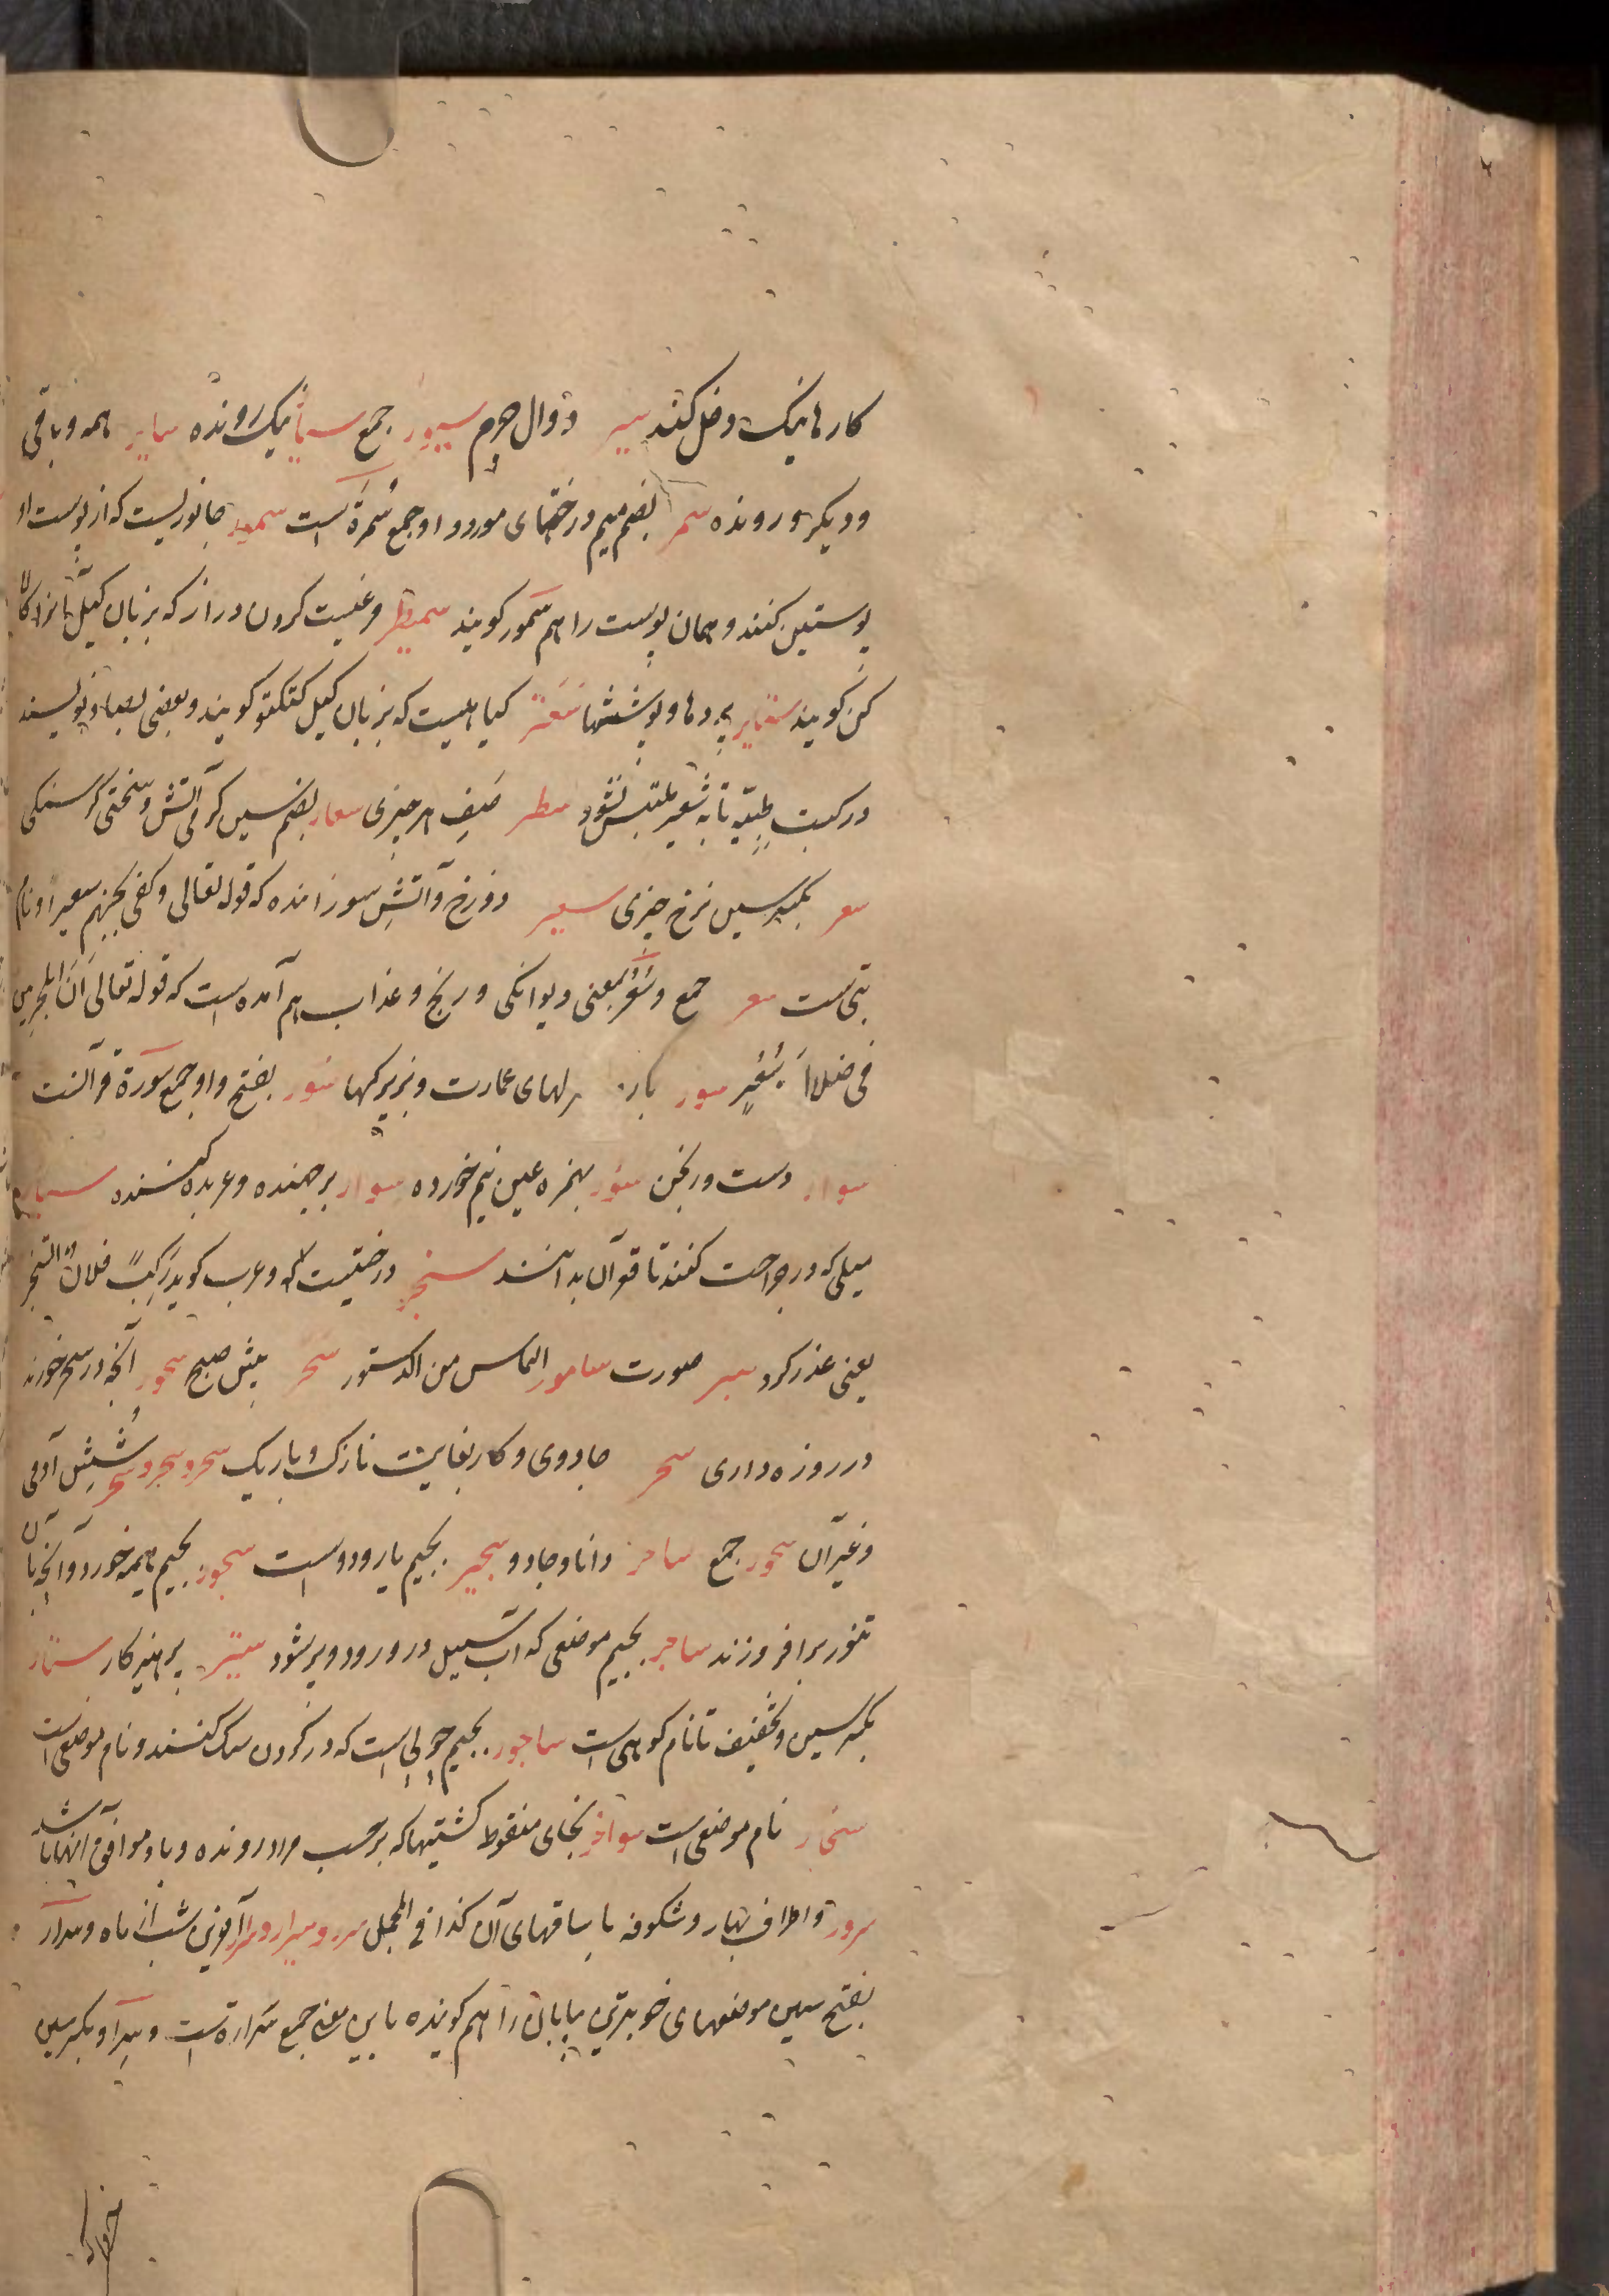 کارها نیک دخل کند سیر دوال چرم سیور جمع سیار نیک رونده سایر همه و باقی
و دیگر و رونده سمر بضم میم درختهای مورد و او جمع سُمرَة است سمور جانوریست که از پوست او
پوستین کنند و همان پوست را هم سمور کویند و غیبت کردن دراز که بزبان کیل
کن کویند ستایر پردها و پوششها سعتر کیاهیست که بزبان کیل ککتو کویند و بعضی بصاد نویسند
در کتب طبیّه تا به شعیر ملتبس نشود سطر صَفِ هر چیزی سعار بضم سین کرمی آتش و سختی کرسنکی
سعر بکسر سین نرخ چیزی سعیر دوزخ و آتشِ سوزاننده که قوله تعالی و کفی بجهنم سعیرا و نام
بتی ست سعر جمع و سُعُر بمعنی دیوانکی و رنج و عذاب هم آمده است که قوله تعالی انّ المجرمین
فی ضلال وسُعُرٍ سور بارهای عمارت و بزرکیها سُوَر بفتح واو جمع سورة قرآنست
سوار دست ورنجن سؤر بهمزه عین نیم خورده سوّار برجهنده و عربده کننده
میلی که در جراحت کنند تا قعر آن بدانند درختیست که و عرب کوید رَکِبَ فلانٌ
یعنی عذر کرد سبر صورت سامور الماس من الدستور سحر پیش صبح سحور آنچه در سحر خورند
در روزه داری سحر جادوی و کار بغایت نازک و باریک سحر و سحر و سحر شُشِ آدمی
و غیر آن سحور جمع ساحر دانا و جادو سجیر بجیم یار و دوست سجور بجیم هیمه خورد و آنچه بآن
تنور برافروزند ساجر بجیم موضعی که آب سیل درو رود و پر شود ستیر پرهیزکار ستار
بکسر سین و تخفیف تا نام کوهی است ساجور بجیم چوبی است که در کردن سک کنند و نام موضعی است
سنجار نام موضعی است سواخر بخای منقوط کشتیها که بر حسب مراد رونده و باد موافق آنها باشد
سرور و اطراف بهار و شکوفه با ساقهای آن کذا فی المجمل سرر و سرار و سرار آخرین شب از ماه و سرار
بفتح سین موضعهای خوبترین بیابان را هم کویند و باین معنی جمع سَرارة است و سِرار بکسر سین